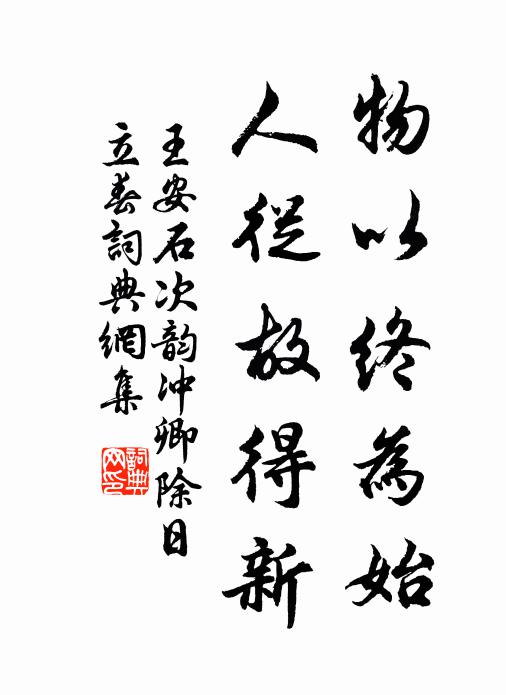 物以終為始
人從故得新
王安石次韵冲卿除日
立春詞典網集
詞典
网印